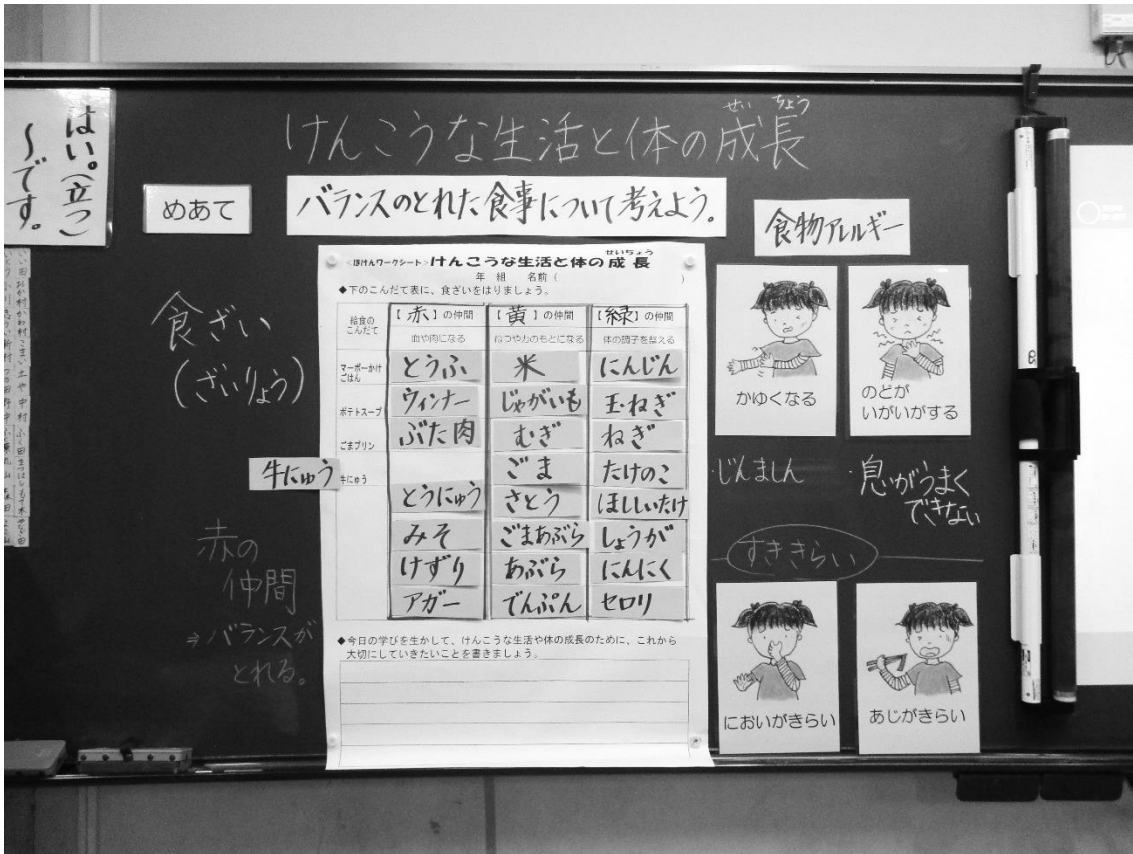 はい。(立つ)
～です。
けんこうな生活と体の成長
せい ちょう
めあて
バランスのとれた食事について考えよう。
食ざい
(ざいりょう)
牛にゅう
赤の
仲間
⇒バランスが
とれる。
<ほけんワークシート>けんこうな生活と体の成長
せいちょう
年 組 名前( )
◆下のこんだて表に、食ざいをはりましょう。
給食の
こんだて
【赤】の仲間 【黄】の仲間 【緑】の仲間
血や肉になる ねつや力のもとになる 体の調子を整える
マーボーかけ
ごはん
ポテトスープ
ごまプリン
牛にゅう
とうふ 米 にんじん
ウィンナー じゃがいも 玉ねぎ
ぶた肉 むぎ ねぎ
ごま たけのこ
とうにゅう さとう ほししいたけ
みそ ごまあぶら しょうが
けずり あぶら にんにく
アガー でんぷん セロリ
◆今日の学びを生かして、けんこうな生活や体の成長のために、これから
大切にしていきたいことを書きましょう。
食物アレルギー
かゆくなる
のどが
いがいがする
・じんましん
・息がうまく
できない
すききらい
においがきらい
あじがきらい